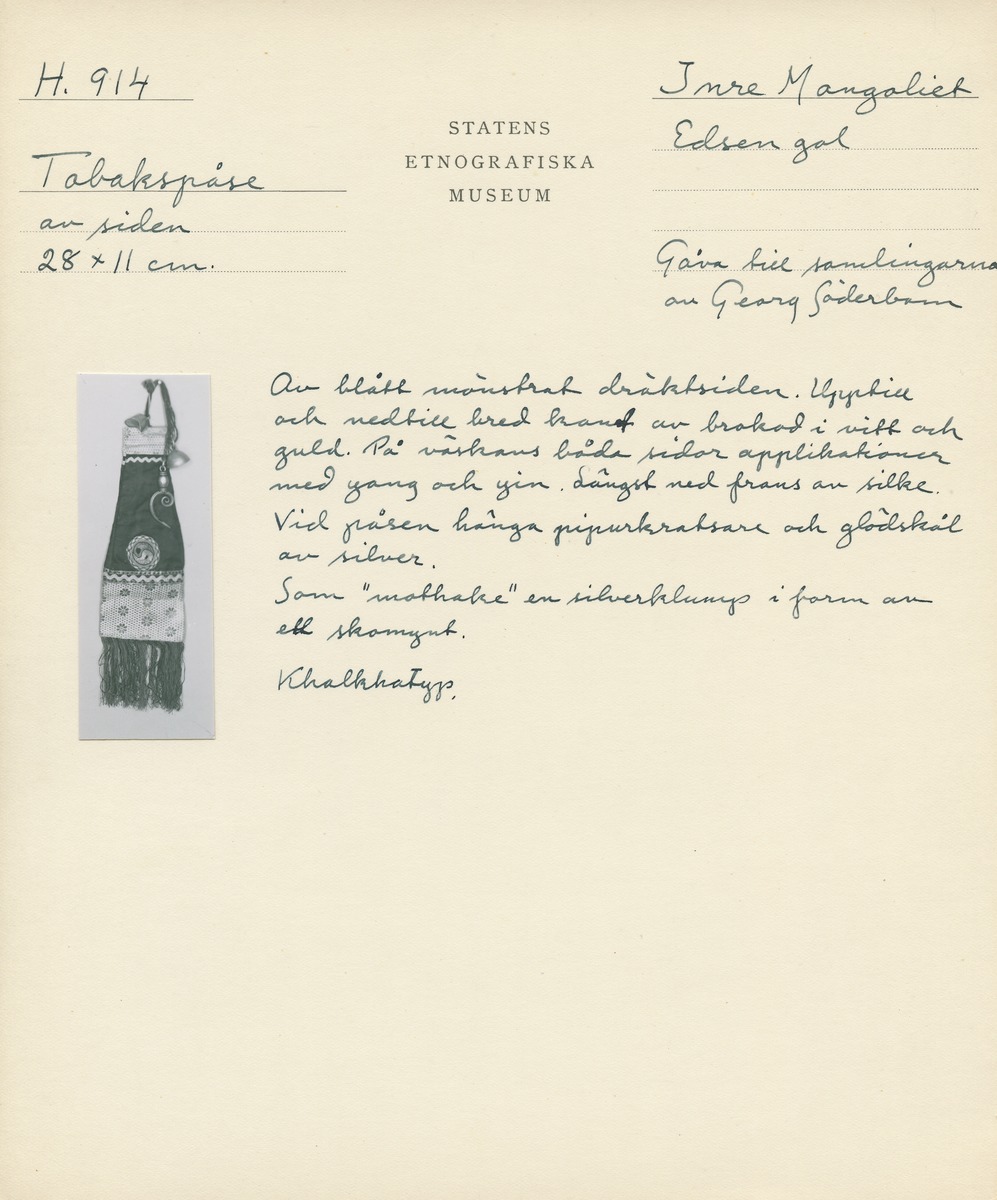 H. 914
Tobakspåse
av siden
28 x 11 cm.
STATENS
ETNOGRAFISKA
MUSEUM
Inre Mongoliet
Edsen gol
Gåva till samlingarna
av Georg Söderbom
Av blått mönstrat dräktsiden. Upptill
och nedtill bred kant av brokad i vitt och
guld. På väskans båda sidor applikationer
med yang och yin. Längst ned frans av silke.
Vid påsen hänga pipurkratsare och glödskål
av silver.
Som "mothake" en silverklump i form av
ett skomynt.
Khalkhatyp.